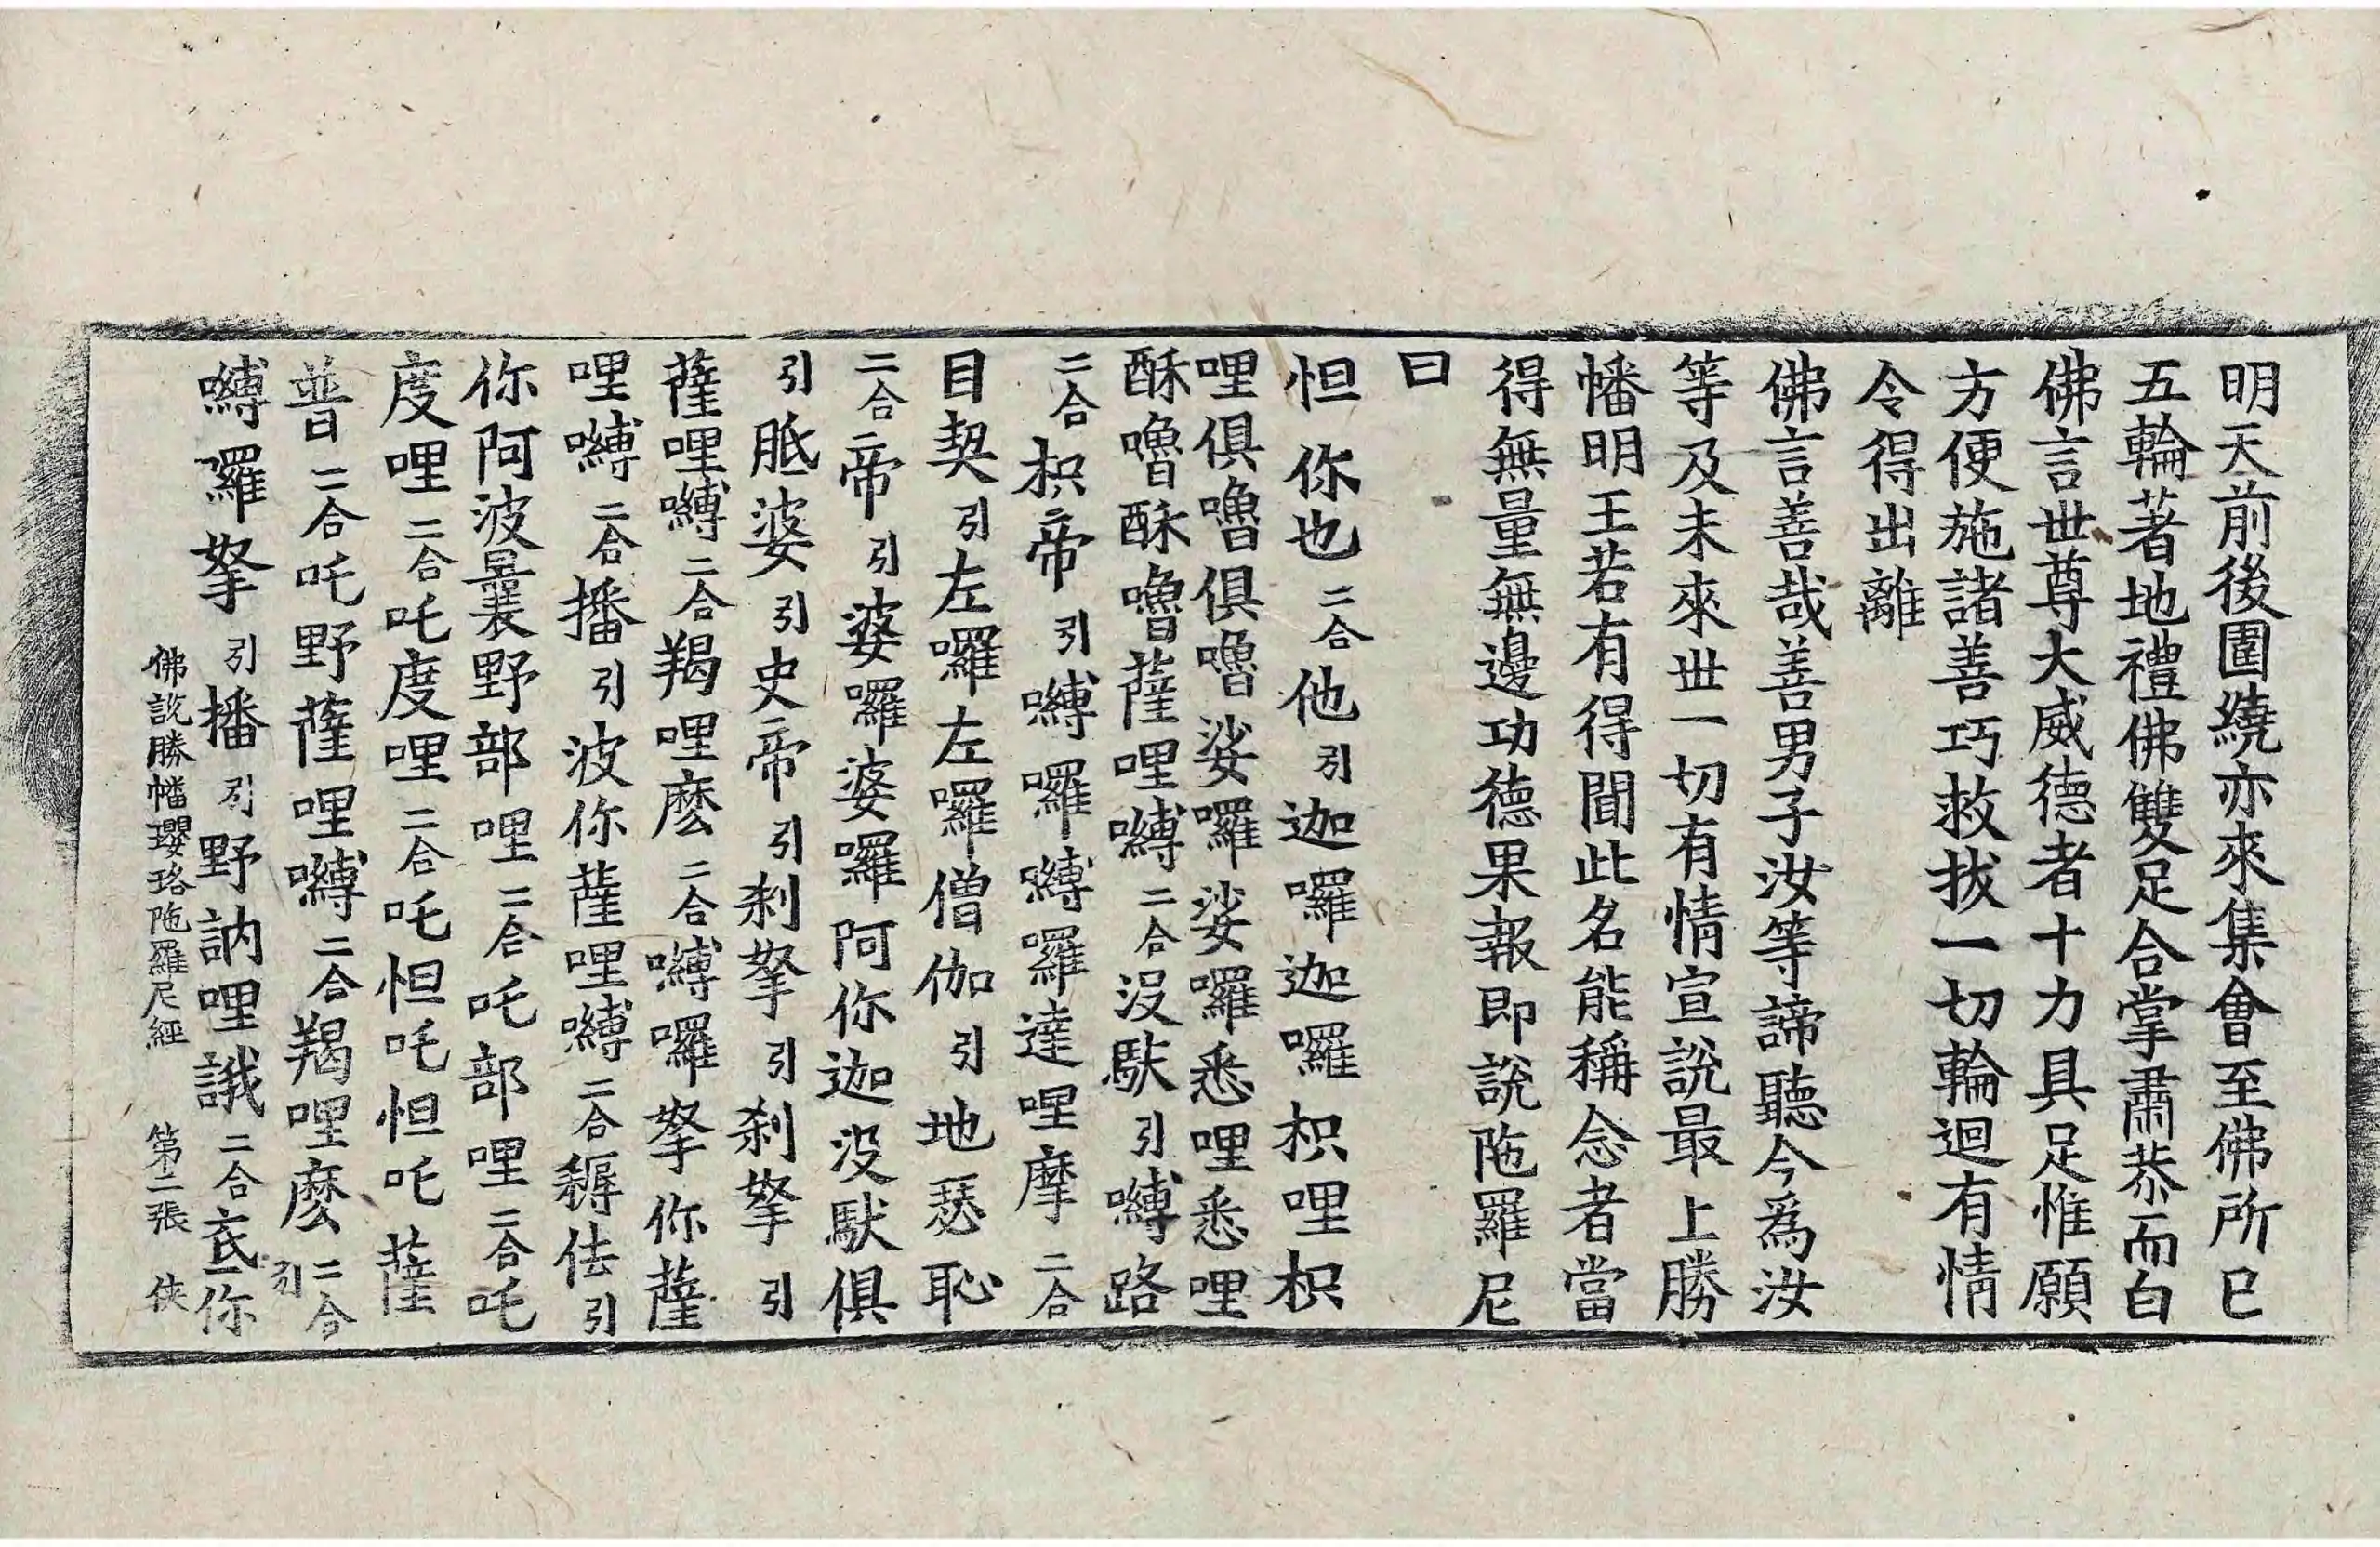 明天前後圍繞亦來集會至佛所已
五輪著地禮佛雙足合掌肅恭而白
佛言世尊大威德者十力具足惟願
方便施諸善巧救拔一切輪迴有情
令得出離
佛言善哉善男子汝等諦聽今爲汝
等及未來世一切有情宣說最上勝
幡明王若有得聞此名能稱念者當
得無量無邊功德果報即說陁羅尼
曰
怛你也二合他引迦囉迦囉枳哩枳
哩俱嚕俱嚕娑囉娑囉悉哩悉哩
酥嚕酥嚕薩哩嚩二合沒馱引嚩路
二合枳帝引嚩囉嚩囉達哩摩二合
目契引左囉左囉僧伽引地瑟恥
二合帝引婆囉婆囉阿你迦沒馱俱
引胝婆引史帝引剎拏引剎拏引
薩哩嚩二合羯哩麽二合嚩囉拏你薩
哩嚩二合播引波你薩哩嚩二合耨佉引
你阿波曩野部哩二合吒部哩二合吒
度哩二合吒度哩二合吒怛吒怛吒薩
普二合吒野薩哩嚩二合羯哩麽二合引
嚩囉拏引播引野訥哩誐二合底你
佛說勝幡瓔珞陁羅尼經 第二張 俠